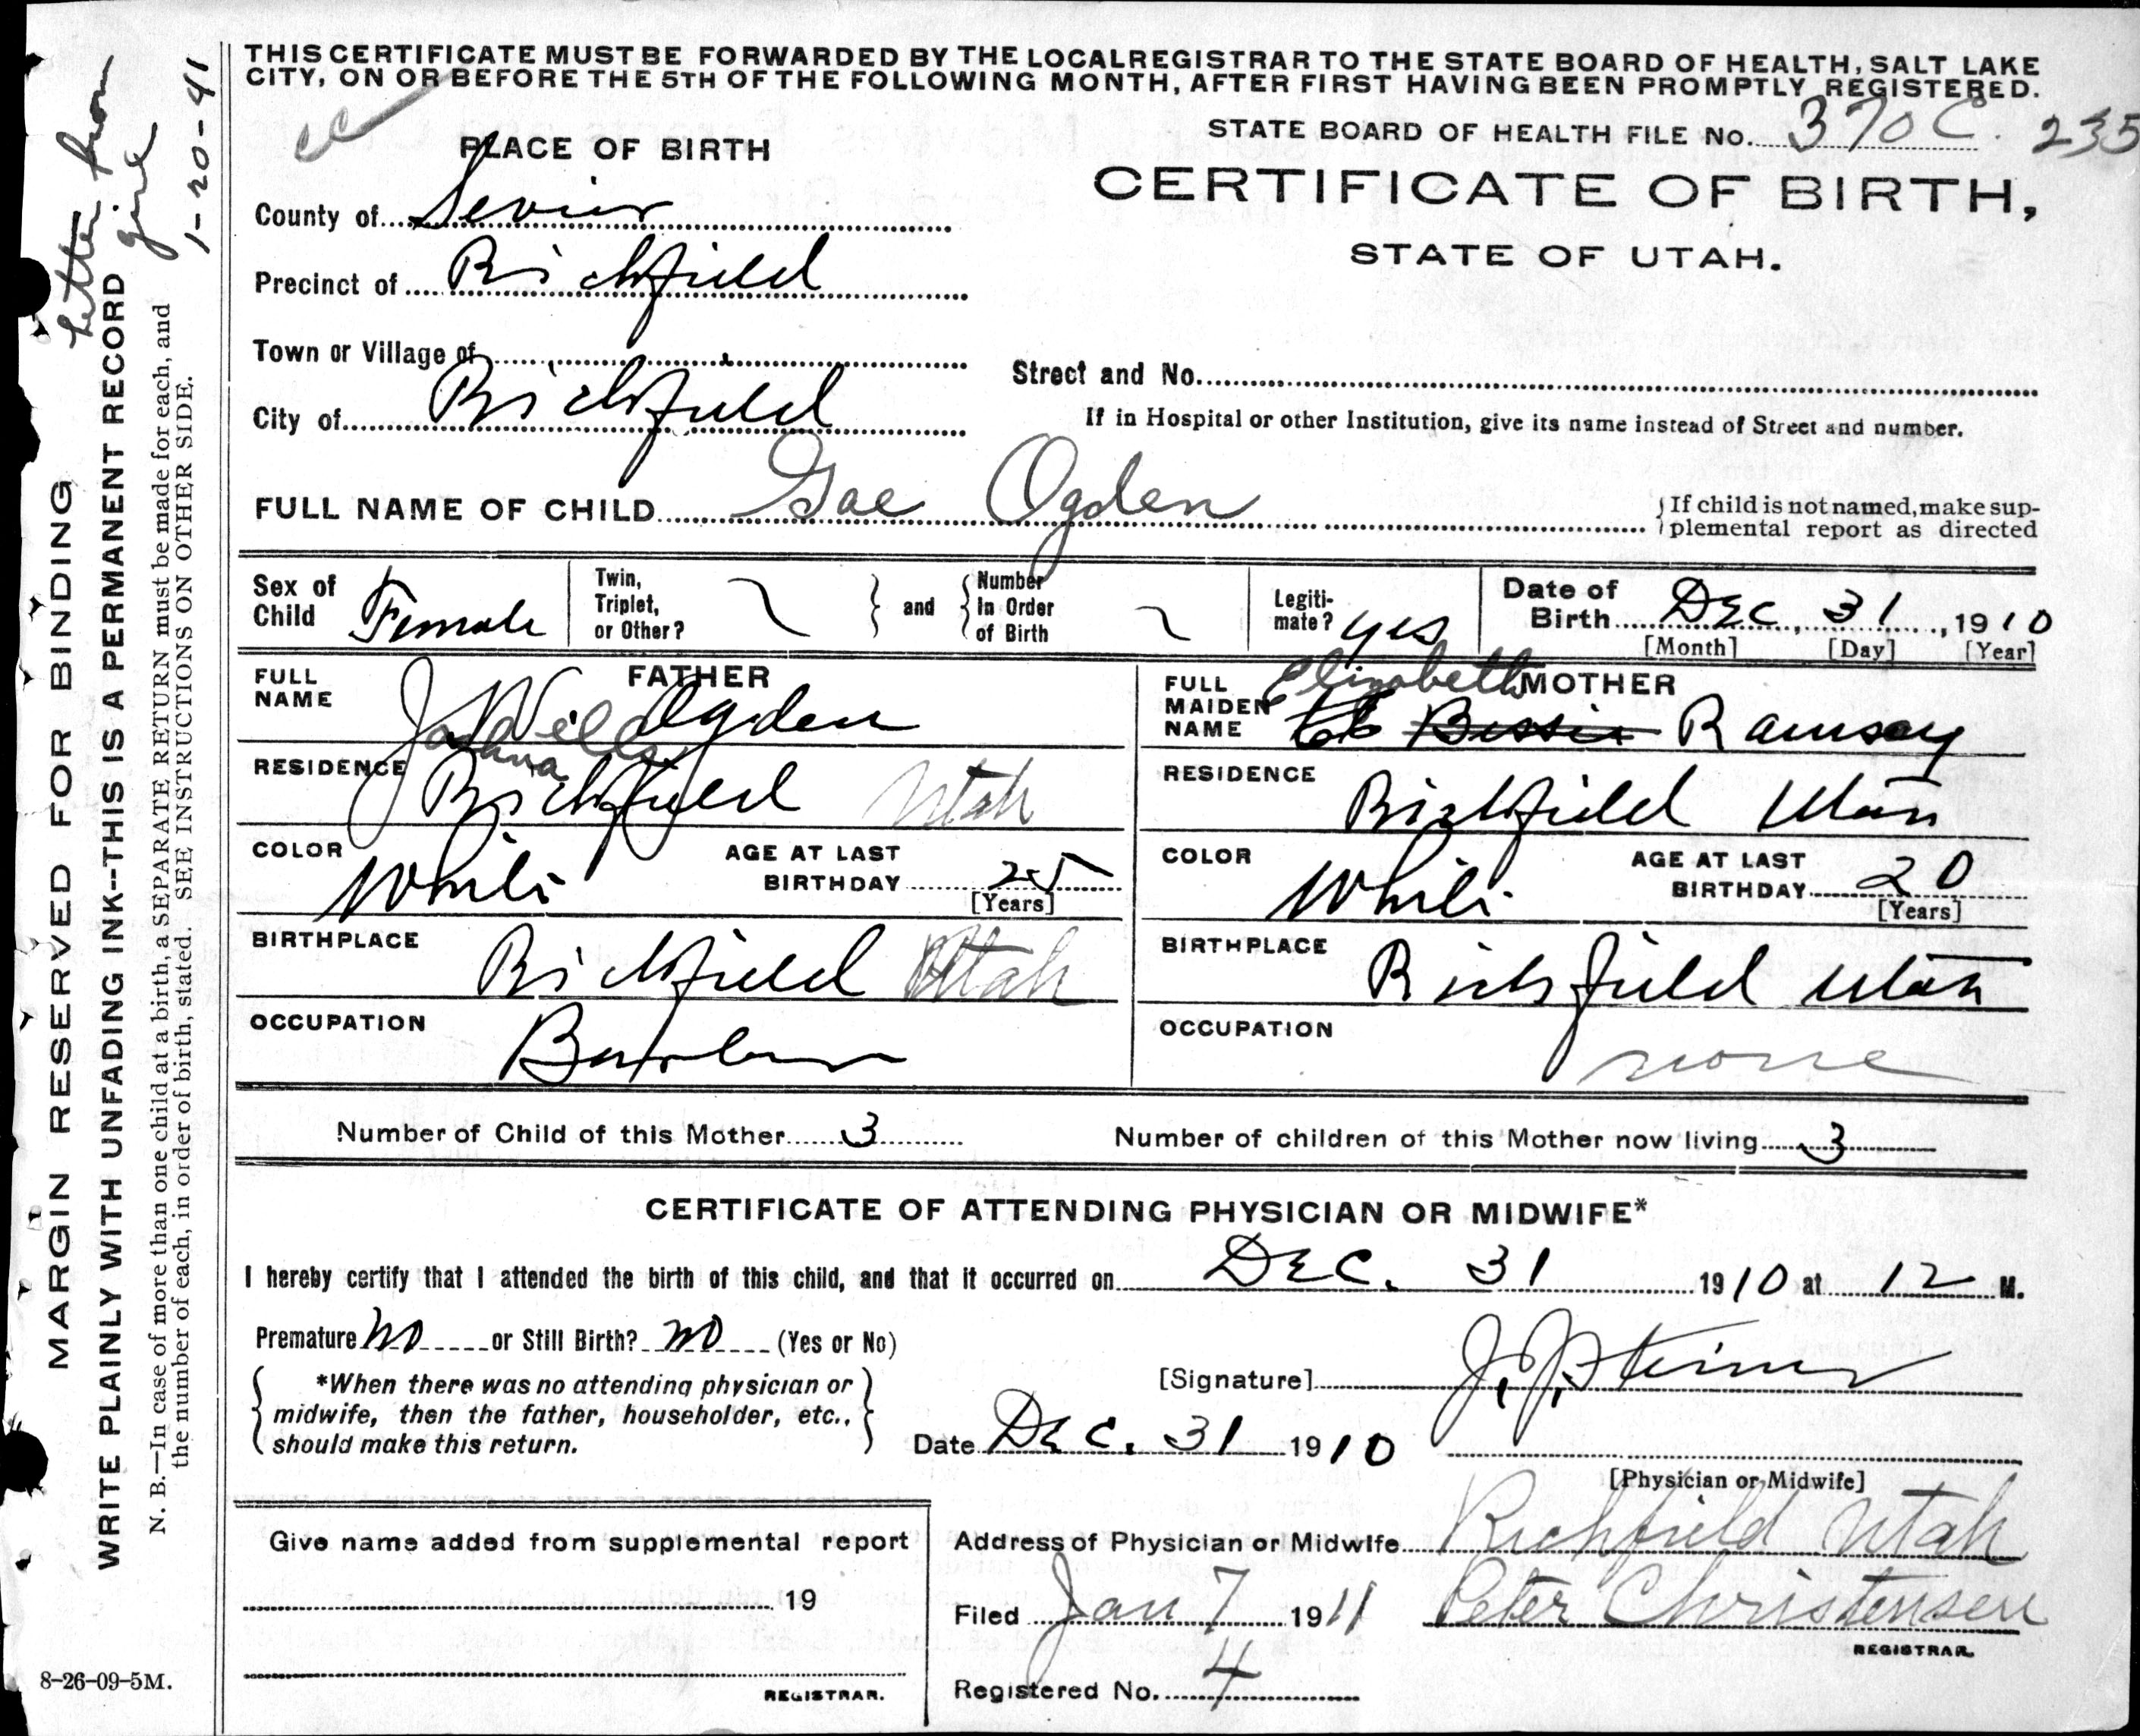 THIS CERTIFICATE MUST BE FORWARDED BY THE LOCAL REGISTRAR TO THE STATE BOARD OF HEALTH, SALT LAKE
CITY, ON OR BEFORE THE 5TH OF THE FOLLOWING MONTH, AFTER FIRST HAVING BEEN PROMPTLY REGISTERED.
STATE BOARD OF HEALTH FILE No. 370 C. 235
CERTIFICATE OF BIRTH,
STATE OF UTAH.
PLACE OF BIRTH
County of Sevier
Precinct of Richfield
Town or Village of
City of Richfield
Street and No.
If in Hospital or other Institution, give its name instead of Street and number.
FULL NAME OF CHILD Gae Ogden
If child is not named, make sup-
plemental report as directed
Sex of Child Female
Twin, Triplet, or Other?
and
Number In Order of Birth
Legiti-mate? yes
Date of Birth Dec, 31, 1910
[Month] [Day] [Year]
FATHER
FULL NAME Wells Ogden
RESIDENCE Richfield Utah
COLOR White
AGE AT LAST BIRTHDAY 25
[Years]
BIRTHPLACE Richfield Utah
OCCUPATION Barber
MOTHER
FULL MAIDEN NAME Elizabeth Bessie Ramsay
RESIDENCE Richfield Utah
COLOR White
AGE AT LAST BIRTHDAY 20
[Years]
BIRTHPLACE Richfield Utah
OCCUPATION none
Number of Child of this Mother 3
Number of children of this Mother now living 3
CERTIFICATE OF ATTENDING PHYSICIAN OR MIDWIFE*
I hereby certify that I attended the birth of this child, and that it occurred on Dec. 31 1910 at 12 M.
Premature no or Still Birth? no (Yes or No)
*When there was no attending physician or
midwife, then the father, householder, etc.,
should make this return.
[Signature] J.J. Steiner
Date Dec. 31 1910
[Physician or Midwife]
Give name added from supplemental report
19
REGISTRAR.
Address of Physician or Midwife Richfield Utah
Filed Jan 7 1911 Peter Christensen
REGISTRAR.
Registered No. 4
8-26-09-5M.
MARGIN RESERVED FOR BINDING
WRITE PLAINLY WITH UNFADING INK--THIS IS A PERMANENT RECORD
N. B.—In case of more than one child at a birth, a SEPARATE RETURN must be made for each, and
the number of each, in order of birth, stated. SEE INSTRUCTIONS ON OTHER SIDE.
Letter from
girl
1-20-41